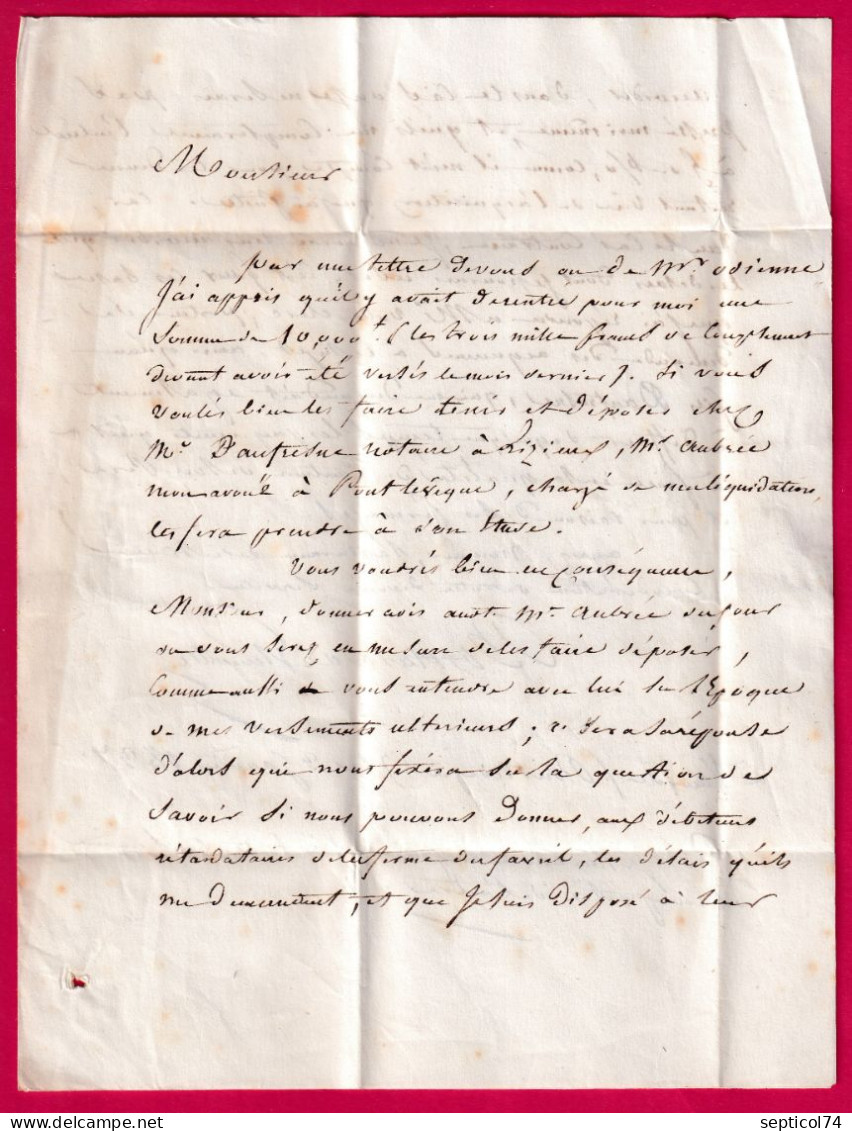 Monsieur
par une lettre de vous ou de Mr. odienne
J'ai appris qu'il y avait de rentré pour moi une
Somme de 10,000 f. (les trois mille francs de Complement
devant avoir été versés le mois dernier). Si vous
voulés bien les faire tenir et déposer chez
Mr. Daufresne notaire à Lizieux, Mr. Aubrée
mon avoüé à Pontlévêque, chargé de ma liquidation,
les fera prendre à son Etude.
Vous voudrés bien en conséquence,
Monsieur, donner avis audt. Mr. Aubrée du jour
ou vous serez en mesure de les faire déposer,
Comme aussi de vous entendre avec lui sur l'Epoque
de mes versements ulterieurs; ce sera sa réponse
d'alors qui nous fixera sur la question de
Savoir Si nous pouvons Donner, aux débiteurs
rétardataires de la ferme du , les délais qu'ils
me demandent, et que Je suis Disposé à leur
septicol74